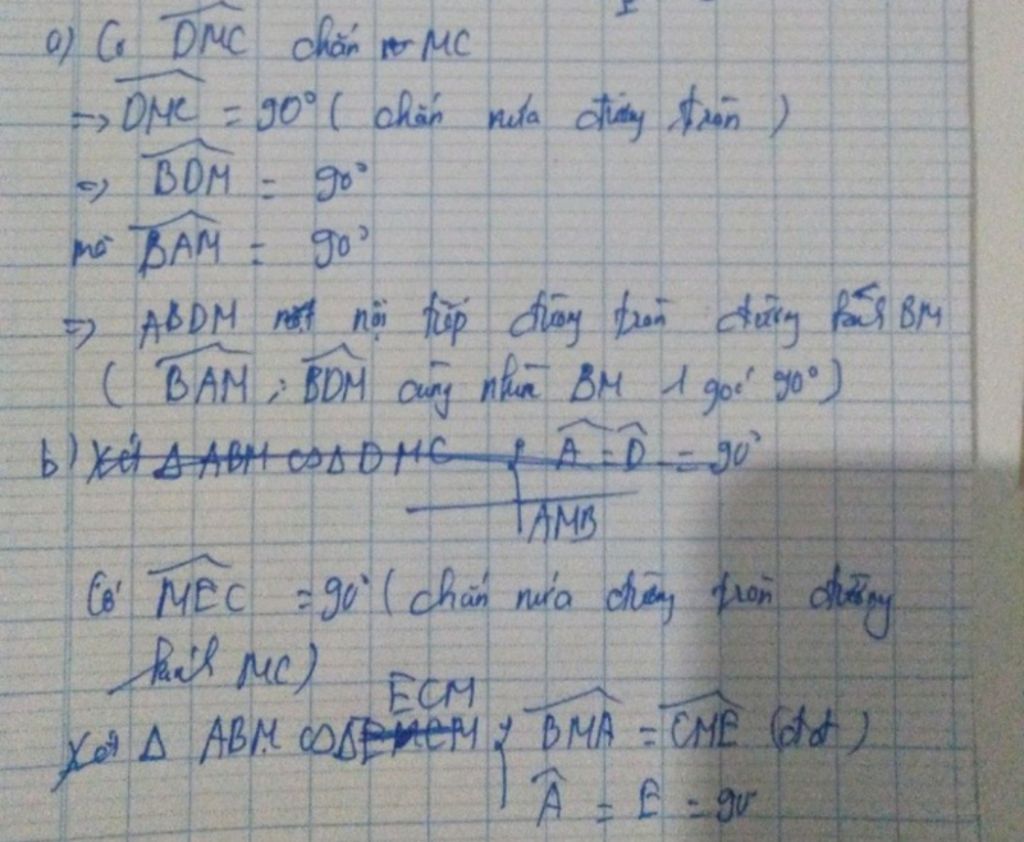 a) Có DMC chắn MC
=> DMC = 90° ( chắn nửa đường tròn )
=> BDM = 90°
mà BAM = 90°
=> ABDM nội tiếp đường tròn đường kính BM
( BAM ; BDM cùng nhìn BM 1 góc 90° )
b) Xét Δ ABM ∽ Δ DMC { A = D = 90°
AMB
Có MEC = 90° ( chắn nửa đường tròn đường
kính MC )
ECM
Xét Δ ABM ∽ Δ { BMA = CME (đđ)
A = E = 90